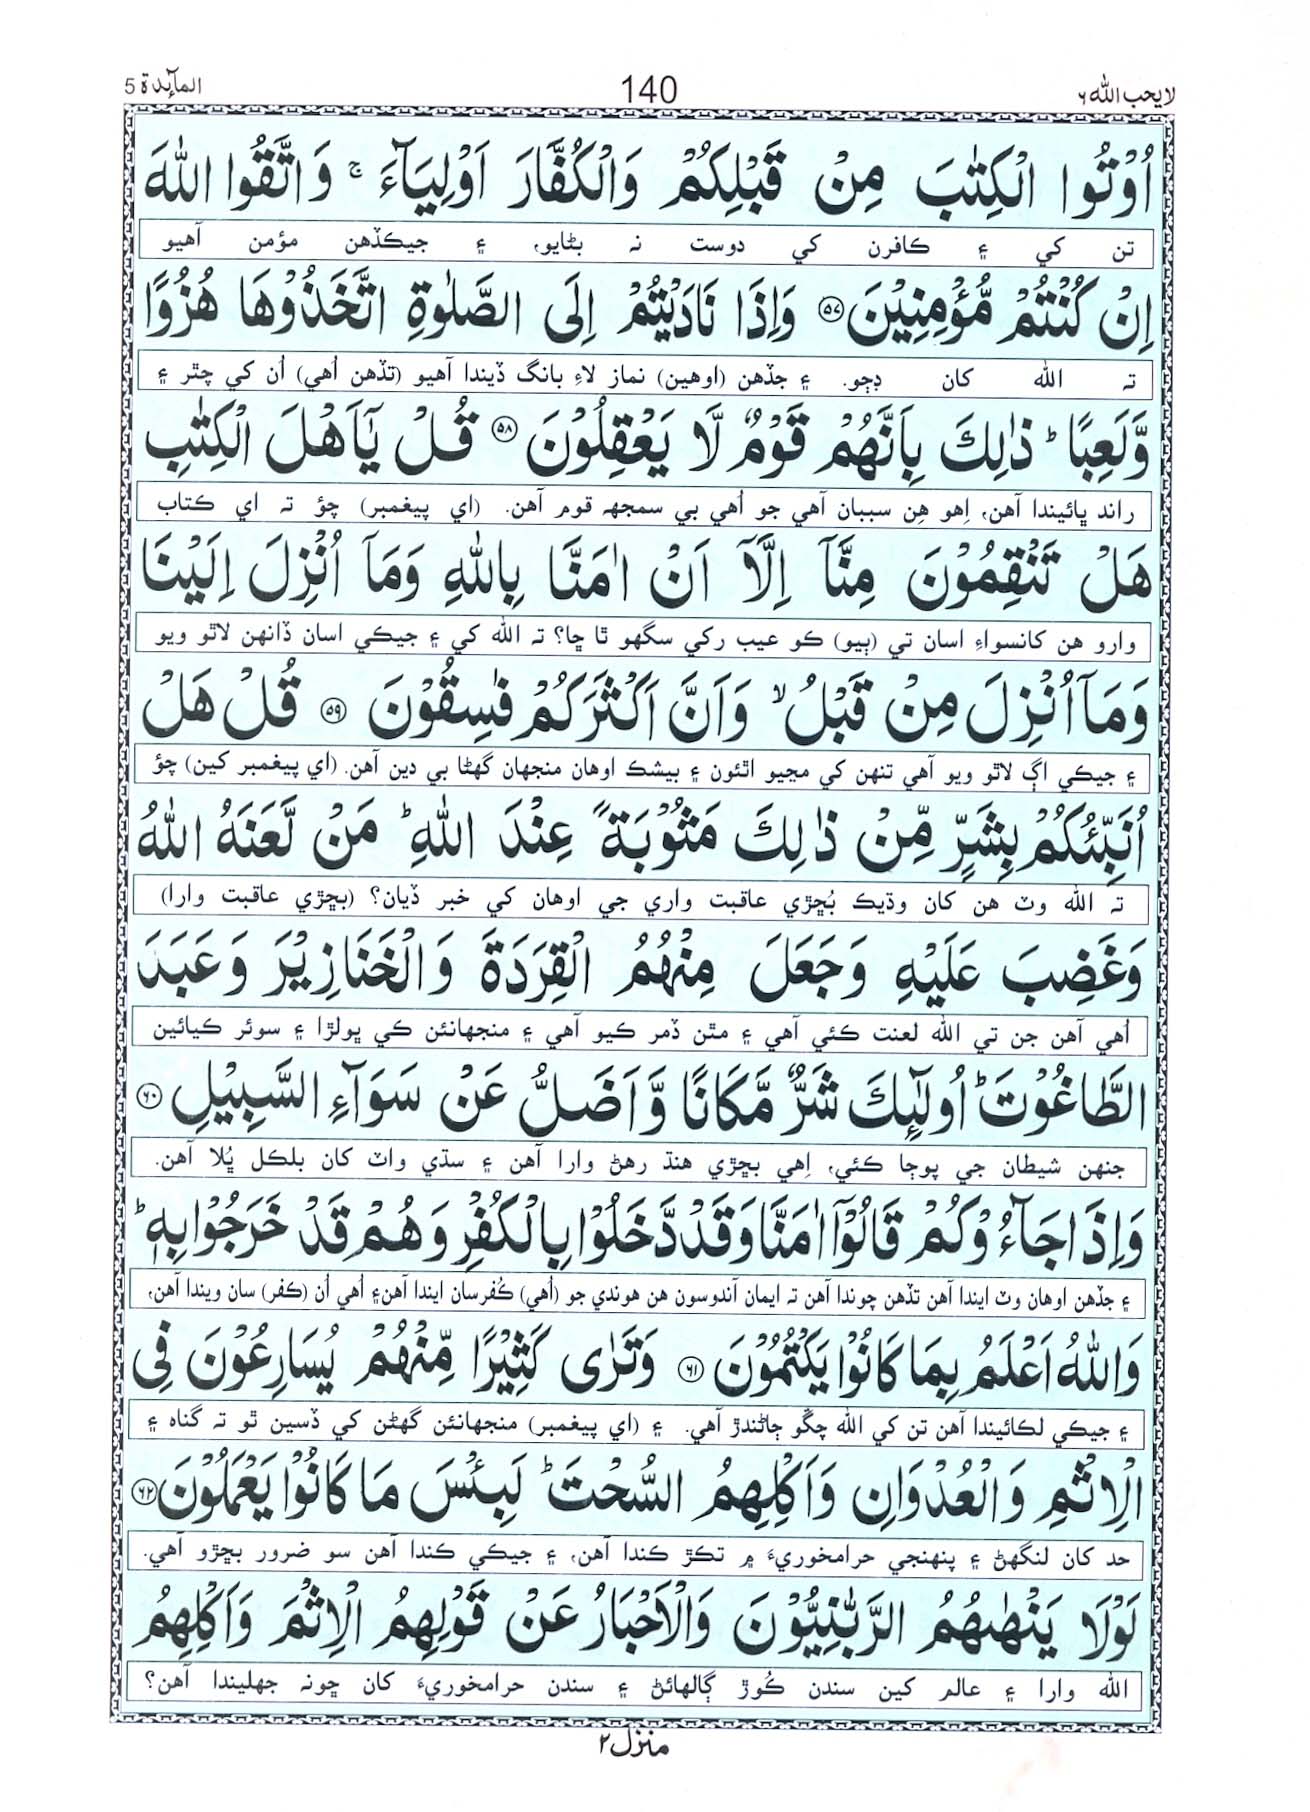 لا يحب الله ٦
140
المآئدة 5
اُوْتُوا الْكِتٰبَ مِنْ قَبْلِكُمْ وَالْكُفَّارَ اَوْلِيَآءَ ۚ وَاتَّقُوا اللّٰهَ
تن کي ۽ ڪافرن کي دوست نہ بڻايو، ۽ جيڪڏهن مؤمن آهيو
اِنْ كُنْتُمْ مُّؤْمِنِيْنَ ۝۵۷ وَاِذَا نَادَيْتُمْ اِلَى الصَّلٰوةِ اتَّخَذُوْهَا هُزُوًا
تہ الله کان ڊڄو. ۽ جڏهن (اوهين) نماز لاءِ بانگ ڏيندا آهيو (تڏهن اُهي) اُن کي چٿر ۽
وَّلَعِبًا ؕ ذٰلِكَ بِاَنَّهُمْ قَوْمٌ لَّا يَعْقِلُوْنَ ۝۵۸ قُلْ يٰٓاَهْلَ الْكِتٰبِ
راند ڀائيندا آهن، اِهو هِن سببان آهي جو اُهي بي سمجهہ قوم آهن. (اي پيغمبر) چؤ تہ اي ڪتاب
هَلْ تَنْقِمُوْنَ مِنَّآ اِلَّآ اَنْ اٰمَنَّا بِاللّٰهِ وَمَآ اُنْزِلَ اِلَيْنَا
وارو هن کانسواءِ اسان تي (ٻيو) ڪو عيب رکي سگهو ٿا ڇا؟ تہ الله کي ۽ جيڪي اسان ڏانهن لاٿو ويو
وَمَآ اُنْزِلَ مِنْ قَبْلُ ۙ وَاَنَّ اَكْثَرَكُمْ فٰسِقُوْنَ ۝۵۹ قُلْ هَلْ
۽ جيڪي اڳ لاٿو ويو آهي تنهن کي مڃيو اٿئون ۽ بيشڪ اوهان منجهان گهڻا بي دين آهن. (اي پيغمبر کين) چؤ
اُنَبِّئُكُمْ بِشَرٍّ مِّنْ ذٰلِكَ مَثُوْبَةً عِنْدَ اللّٰهِ ؕ مَنْ لَّعَنَهُ اللّٰهُ
تہ الله وٽ هن کان وڌيڪ بُڇڙي عاقبت واري جي اوهان کي خبر ڏيان؟ (بڇڙي عاقبت وارا)
وَغَضِبَ عَلَيْهِ وَجَعَلَ مِنْهُمُ الْقِرَدَةَ وَالْخَنَازِيْرَ وَعَبَدَ
اُهي آهن جن تي الله لعنت ڪئي آهي ۽ مٿن ڏمر ڪيو آهي ۽ منجهانئن کي ڀولڙا ۽ سوئر ڪيائين
الطَّاغُوْتَ ؕ اُولٰٓئِكَ شَرٌّ مَّكَانًا وَّاَضَلُّ عَنْ سَوَآءِ السَّبِيْلِ ۝۶۰
جنهن شيطان جي پوڄا ڪئي، اِهي بڇڙي هنڌ رهڻ وارا آهن ۽ سڌي واٽ کان بلڪل ڀُلا آهن.
وَاِذَا جَآءُوْكُمْ قَالُوْٓا اٰمَنَّا وَقَدْ دَّخَلُوْا بِالْكُفْرِ وَهُمْ قَدْ خَرَجُوْا بِهٖ ؕ
۽ جڏهن اوهان وٽ ايندا آهن تڏهن چوندا آهن تہ ايمان آندوسون هن هوندي جو (اُهي) ڪُفرسان ايندا آهن۽ اُهي اُن (ڪفر) سان ويندا آهن،
وَاللّٰهُ اَعْلَمُ بِمَا كَانُوْا يَكْتُمُوْنَ ۝۶۱ وَتَرٰى كَثِيْرًا مِّنْهُمْ يُسَارِعُوْنَ فِى
۽ جيڪي لڪائيندا آهن تن کي الله چڱو ڄاڻندڙ آهي. ۽ (اي پيغمبر) منجهانئن گهڻن کي ڏسين ٿو تہ گناه ۽
الْاِثْمِ وَالْعُدْوَانِ وَاَكْلِهِمُ السُّحْتَ ؕ لَبِئْسَ مَا كَانُوْا يَعْمَلُوْنَ ۝۶۲
حد کان لنگهڻ ۽ پنهنجي حرامخوريءَ ۾ تڪڙ ڪندا آهن، ۽ جيڪي ڪندا آهن سو ضرور بڇڙو آهي.
لَوْلَا يَنْهٰىهُمُ الرَّبّٰنِيُّوْنَ وَالْاَحْبَارُ عَنْ قَوْلِهِمُ الْاِثْمَ وَاَكْلِهِمُ
الله وارا ۽ عالم کين سندن ڪُوڙ ڳالهائڻ ۽ سندن حرامخوريءَ کان ڇونہ جهليندا آهن؟
منزل ٢